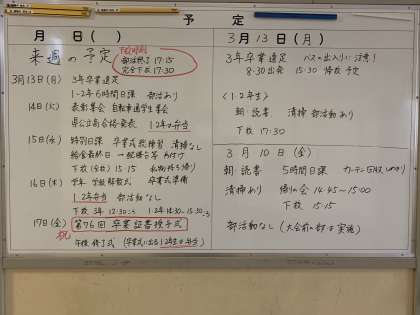 予定
月 日 ( )
来週の予定
部活終了 17:15
完全下校 17:30
3月13日(月) 3年卒業遠足
1・2年 6時間日課 部活あり
14日(火) 表彰集会 自転車通学生集会
県公立高合格発表 1,2年弁当
15日(水) 特別日課 卒業式総練習 清掃なし
給食最終日
下校(全校) 15:15
16日(木) 学年・学級解散式 卒業式準備
1,2年弁当 部活動なし
下校 3年 12:30
17日(金) 第76回 卒業証書授与式
祝
午後 修了式
3月13日(月)
3年卒業遠足 バスの出入りに注意!
8:30出発 15:30 帰校予定
<1・2年生>
朝・読書 清掃 部活動あり
下校 17:30
3月10日(金)
朝・読書 5時間日課
清掃あり 帰りの会 14:45〜15:00
下校 15:15
部活動なし(大会前の部は実施)